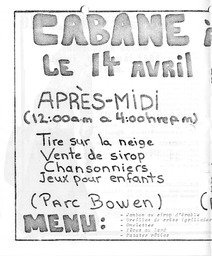 CABANE à
LE 14 avril
APRÈS-MIDI
(12:00am a 4:00hrepm)
Tire sur la neige
Vente de sirop
Chansonniers
Jeux pour enfants
(Parc Bowen) (
MENU:
- Jambon au sirop d'érable
- Omelettes
- Fèves au lard
- Patates rôties